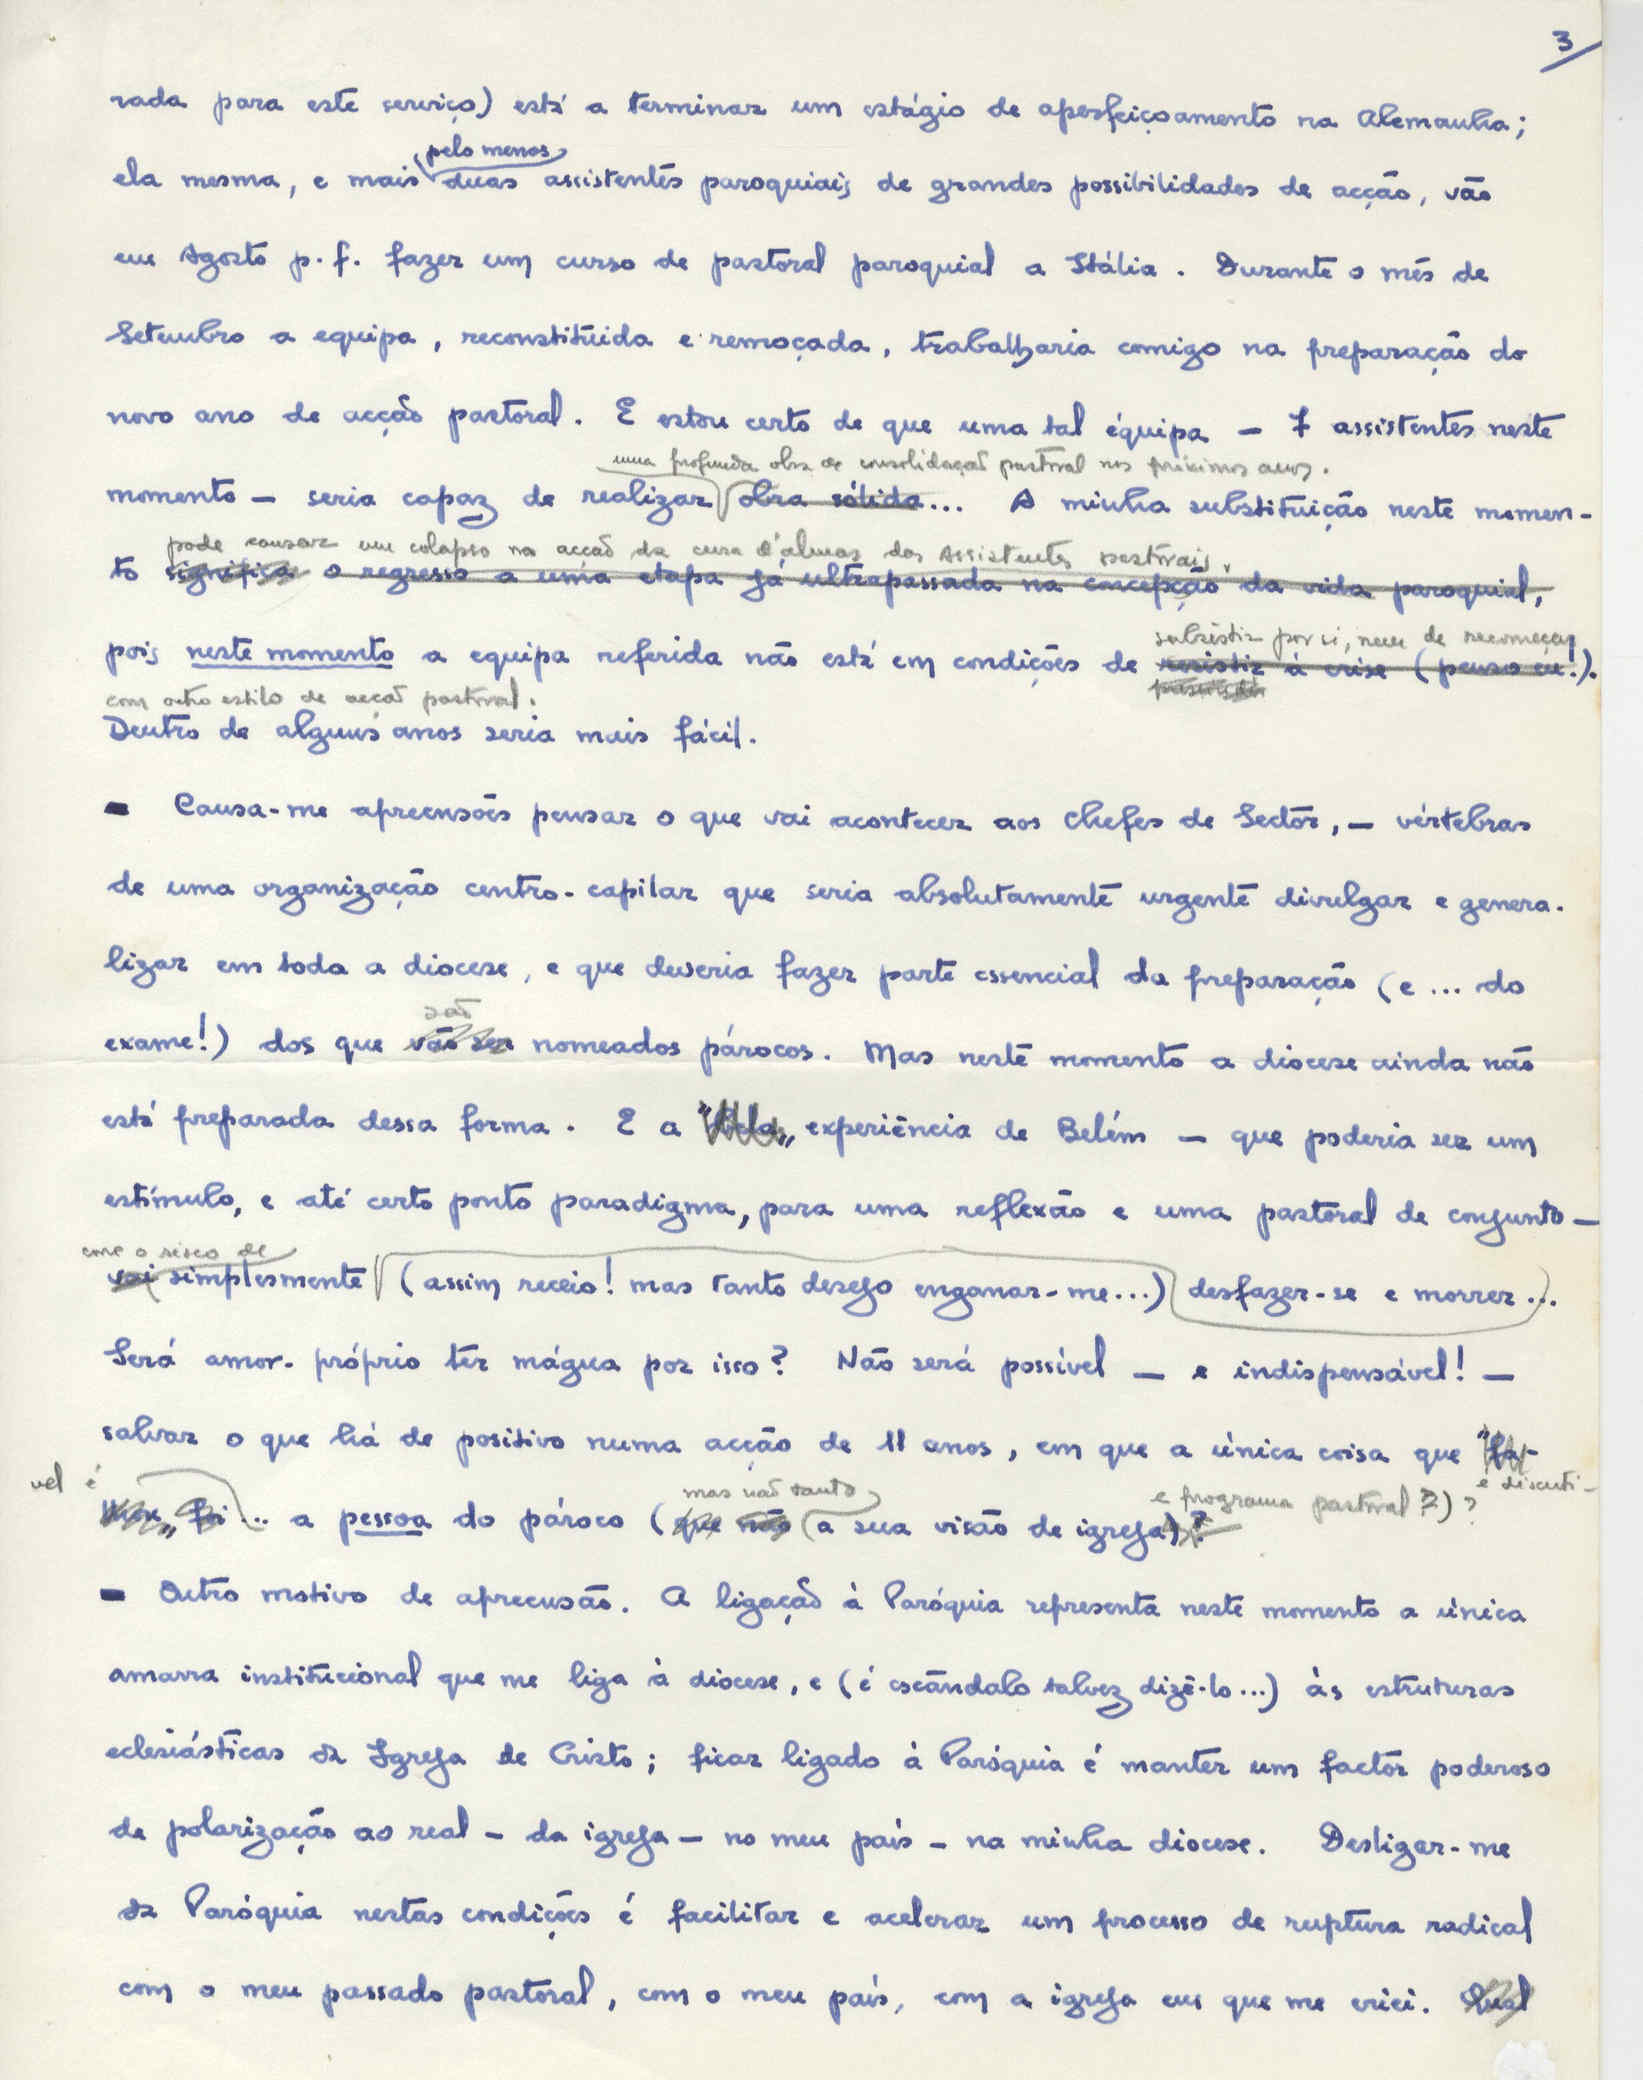 3
rada para este serviço) está a terminar um estágio de aperfeiçoamento na Alemanha;
pelo menos
ela mesma, e mais duas assistentes paroquiais de grandes possibilidades de acção, vão
em Agosto p.f. fazer um curso de pastoral paroquial a Itália. Durante o mês de
Setembro a equipa, reconstituída e remoçada, trabalharia comigo na preparação do
novo ano de acção pastoral. E estou certo de que uma tal équipa – 7 assistentes neste
uma profunda obra de consolidação pastoral nos próximos anos.
momento – seria capaz de realizar obra sólida... A minha substituição neste momen-
pode causar um colapso na acção da cura d'almas das Assistentes pastorais,
to significa o regresso a uma etapa já ultrapassada na concepção da vida paroquial,
subsistir por si, nem de recomeçar
pois neste momento a equipa referida não está em condições de resistir à crise (penso eu!).
com outro estilo de acção pastoral.
Dentro de alguns anos seria mais fácil.
- Causa-me apreensões pensar o que vai acontecer aos Chefes de Sector, – vértebras
de uma organização centro-capilar que seria absolutamente urgente divulgar e genera-
lizar em toda a diocese, e que deveria fazer parte essencial da preparação (e ... do
são
exame!) dos que vão ser nomeados párocos. Mas neste momento a diocese ainda não
está preparada dessa forma. E a "bela" experiência de Belém – que poderia ser um
estímulo, e até certo ponto paradigma, para uma reflexão e uma pastoral de conjunto –
corre o risco de
vai simplesmente (assim receio! mas tanto desejo enganar-me...) desfazer-se e morrer...
Será amor-próprio ter mágua por isso? Não será possível – e indispensável! –
salvar o que há de positivo numa acção de 11 anos, em que a única coisa que "fa-
é discuti-
vel é
mas não tanto
e programa pastoral?)?
foi... a pessoa do pároco (que não a sua visão de igreja)?
- Outro motivo de apreensão. A ligação à Paróquia representa neste momento a única
amarra institucional que me liga à diocese, e (é escândalo talvez dizê-lo...) às estruturas
eclesiásticas da Igreja de Cristo; ficar ligado à Paróquia é manter um factor poderoso
de polarização ao real – da igreja – no meu país – na minha diocese. Desligar-me
da Paróquia nestas condições é facilitar e acelerar um processo de ruptura radical
com o meu passado pastoral, com o meu país, com a igreja em que me criei. Qual